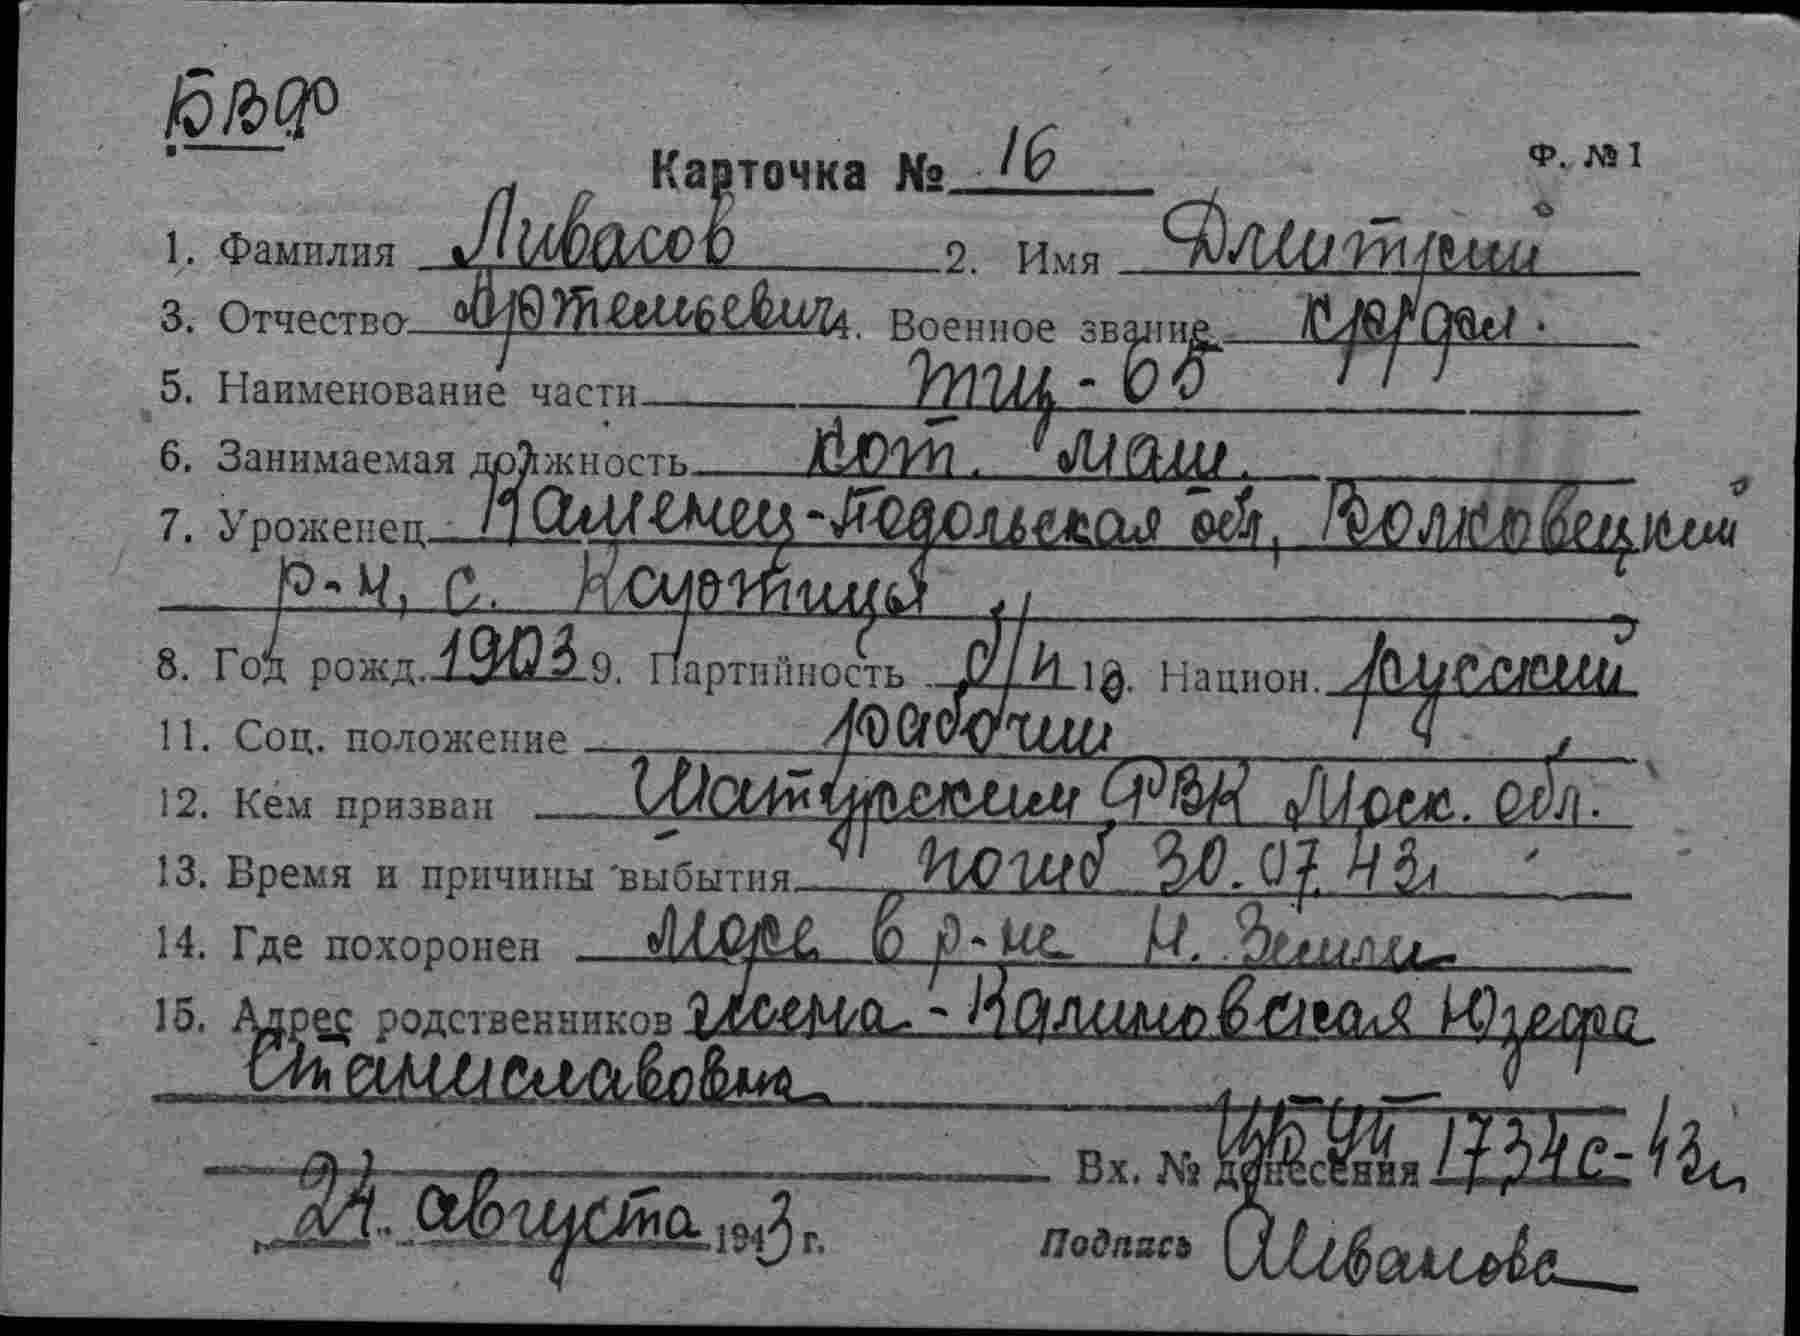 БВФ
Карточка № 16
Ф. № 1
1. Фамилия Ливасов 2. Имя Дмитрий
3. Отчество Артемьевич 4. Военное звание кр- 
5. Наименование части ТЩ-65
6. Занимаемая должность кот. маш.
7. Уроженец Каменец-Подольская обл, Волковецкий
р-н, с.
8. Год рожд. 1903 9. Партийность б/п 10. Национ. русский
11. Соц. положение рабочий
12. Кем призван Шатурским РВК Моск. обл.
13. Время и причины выбытия погиб 30.07.43г
14. Где похоронен море в р-не Н. Земли
15. Адрес родственников жена - Калиновская Юзефа
Станиславовна
Вх. № донесения 1734с-43г
24 августа 1943 г.
Подпись АИванова